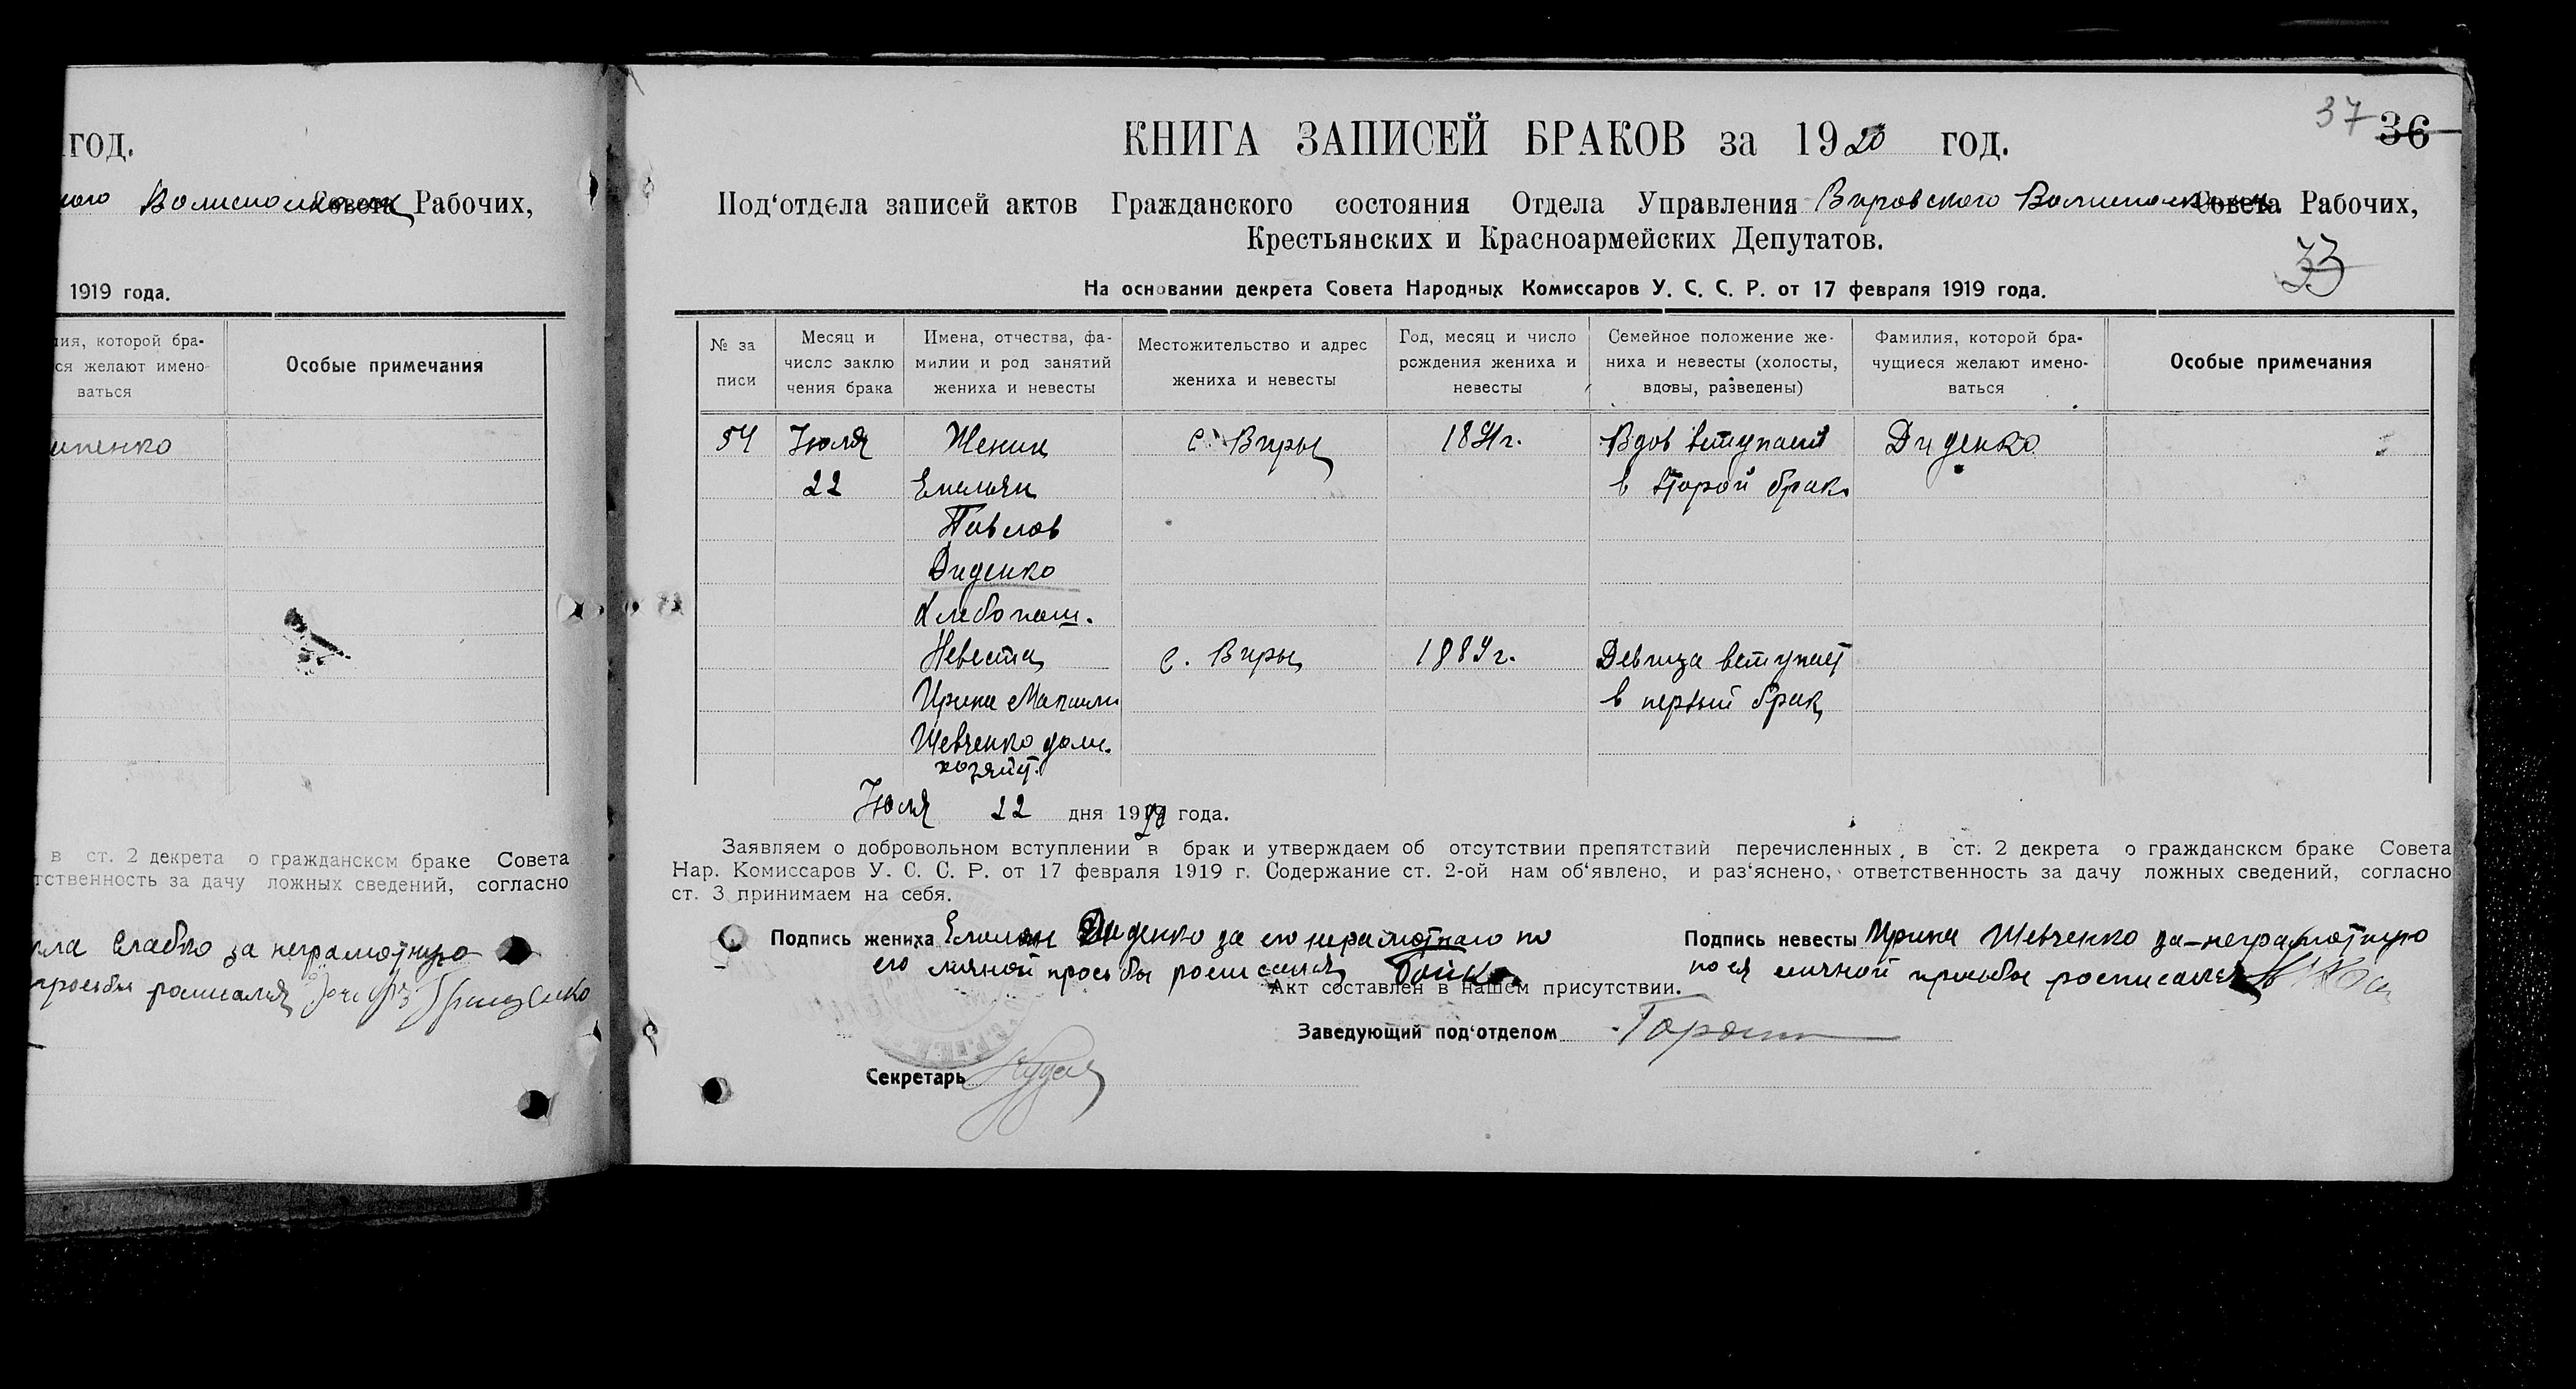 год.
Волисполкома Совета Рабочих,
1919 года.
которой бра-
ся желают имено-
ваться
Особые примечания
в ст. 2 декрета о гражданском браке Совета
за дачу ложных сведений, согласно
Слабко за неграмотную
просьбы росписался Грищенко
37 36
КНИГА ЗАПИСЕЙ БРАКОВ за 1920 год.
Под‘отдела записей актов Гражданского состояния Отдела Управления Вировского Волисполкома Совета Рабочих,
Крестьянских и Красноармейских Депутатов.
33
На основании декрета Совета Народных Комиссаров У. С. С. Р. от 17 февраля 1919 года.
№ за
писи
Месяц и
число заклю
чения брака
Имена, отчества, фа-
милии и род занятий
жениха и невесты
Местожительство и адрес
жениха и невесты
Год, месяц и число
рождения жениха и
невесты
Семейное положение же-
ниха и невесты (холосты,
вдовы, разведены)
Фамилия, которой бра-
чущиеся желают имено-
ваться
Особые примечания
54 Июля Жених с. Виры Вдов вступает Диденко
22 Емельян в второй брак
Павлов
Диденко
Хлебопаш.
Невеста с. Виры 1889г. Девица вступает
Ирина в первый брак
Шевченко дом.
хозяйст.
Июля 22 дня 1920 года.
Заявляем о добровольном вступлении в брак и утверждаем об отсутствии препятствий перечисленных в ст. 2 декрета о гражданском браке Совета
Нар. Комиссаров У. С. С. Р. от 17 февраля 1919 г. Содержание ст. 2-ой нам об‘явлено, и раз‘яснено, ответственность за дачу ложных сведений, согласно
ст. 3 принимаем на себя.
Подпись жениха Емельян Диденко за его неграмотного по
его личной просьбы росписался Бойко
Подпись невесты Ирина Шевченко за-неграмотную
по ея личной просьбы росписался
Акт составлен в нашем присутствии.
Заведующий под‘отделом
Секретарь